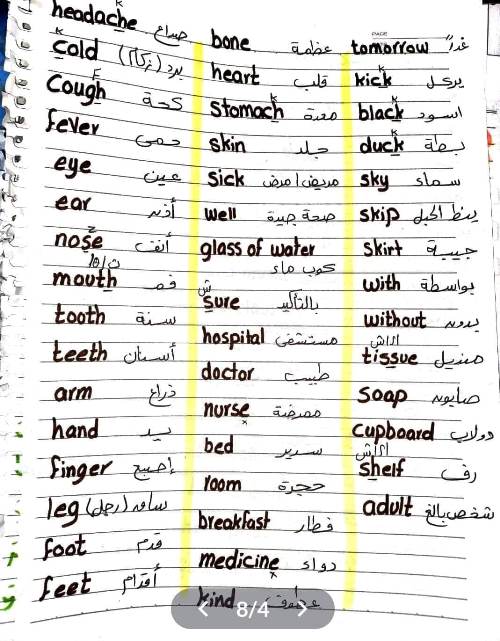 headache صداع
cold برد (زكام)
cough كحة
fever حمى
eye عين
ear أذن
nose أنف
mouth فم
tooth سنة
teeth أسنان
arm ذراع
hand يد
finger إصبع
leg ساق (رجل)
foot قدم
feet أقدام
bone عظمة
heart قلب
stomach معدة
skin جلد
sick مريض / مرض
well صحة جيدة
glass of water
كوب ماء
sure بالتأكيد
hospital مستشفى
doctor طبيب
nurse ممرضة
bed سرير
room حجرة
breakfast فطار
medicine دواء
kind عطوف
8/4
PAGE
tomorrow غداً
kick يركل
black اسود
duck بطة
sky سماء
skip ينط الحبل
skirt جيبة
with بواسطة
without بدون
tissue منديل
soap صابون
cupboard دولاب
shelf رف
adult شخص بالغ